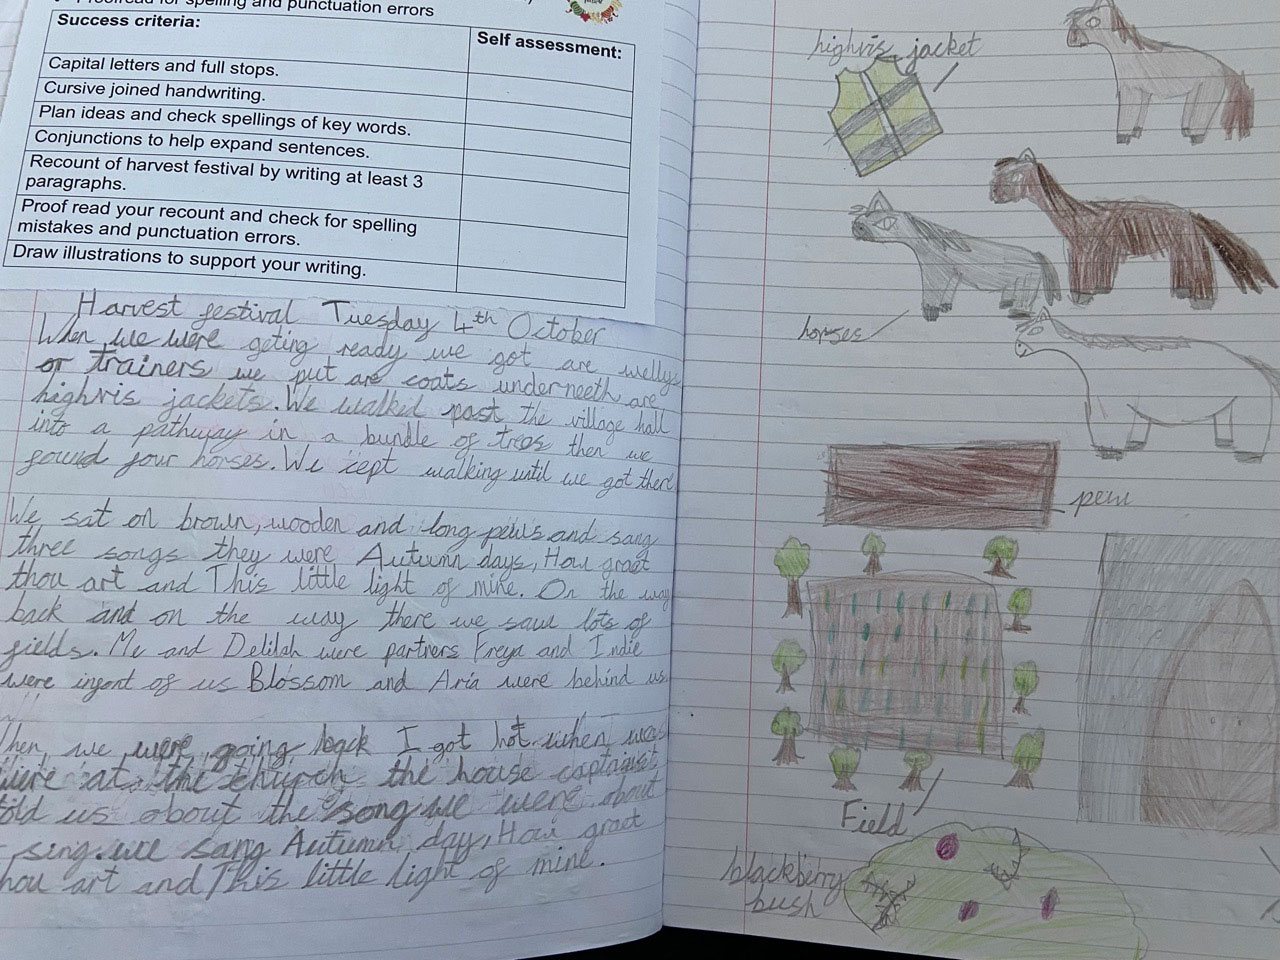 Proofread for spelling and punctuation errors
Success criteria:
Self assessment:
Capital letters and full stops.
Cursive joined handwriting.
Plan ideas and check spellings of key words.
Conjunctions to help expand sentences.
Recount of harvest festival by writing at least 3
paragraphs.
Proof read your recount and check for spelling
mistakes and punctuation errors.
Draw illustrations to support your writing.
Harvest festival Tuesday 4th October
When, we were geting ready we got are wellys
or trainers we put are coats underneeth are
highvis jackets. We walked past the village hall
into a pathway in a bundle of trees then we
found four horses. We cept walking until we got there
We sat on brown, wooden and long pews and sang
three songs they were Autumn days, How graet
thou art and This little light of mine. On the way
back and on the way there we saw lots of
fields. Me and Delilah were partners Freya and Indie
were infont of us Blossom and Aria were behind us.
When, we were, going back I got hot. when we
were at the church the house captains
told us about the song we were about
sing. we sang Autumn day, How graet
thou art and This little light of mine.
highvis jacket
horses
pew
Field
blackberry
bush